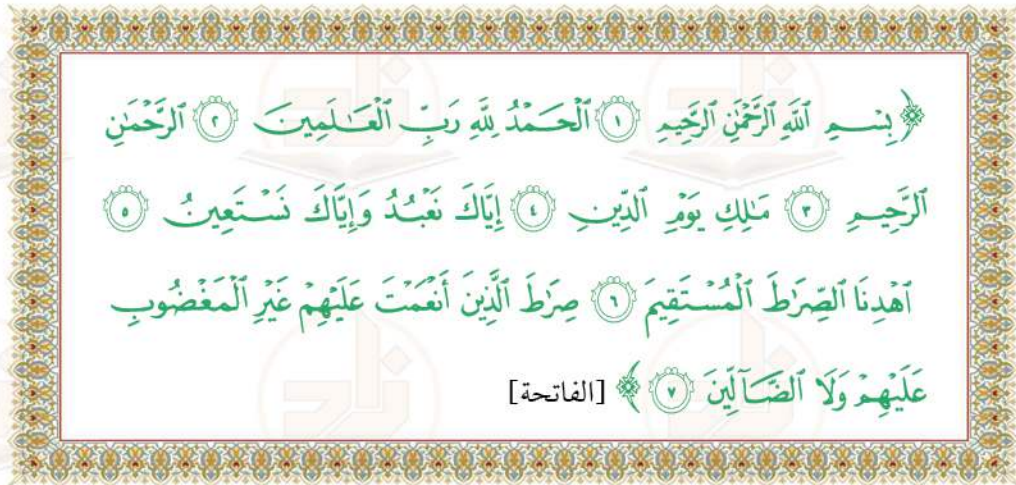 ﴿بِسْمِ ٱللَّهِ ٱلرَّحْمَٰنِ ٱلرَّحِيمِ ١ ٱلْحَمْدُ لِلَّهِ رَبِّ ٱلْعَٰلَمِينَ ٢ ٱلرَّحْمَٰنِ
ٱلرَّحِيمِ ٣ مَٰلِكِ يَوْمِ ٱلدِّينِ ٤ إِيَّاكَ نَعْبُدُ وَإِيَّاكَ نَسْتَعِينُ ٥
ٱهْدِنَا ٱلصِّرَٰطَ ٱلْمُسْتَقِيمَ ٦ صِرَٰطَ ٱلَّذِينَ أَنْعَمْتَ عَلَيْهِمْ غَيْرِ ٱلْمَغْضُوبِ
عَلَيْهِمْ وَلَا ٱلضَّآلِّينَ ٧﴾ [الفاتحة]